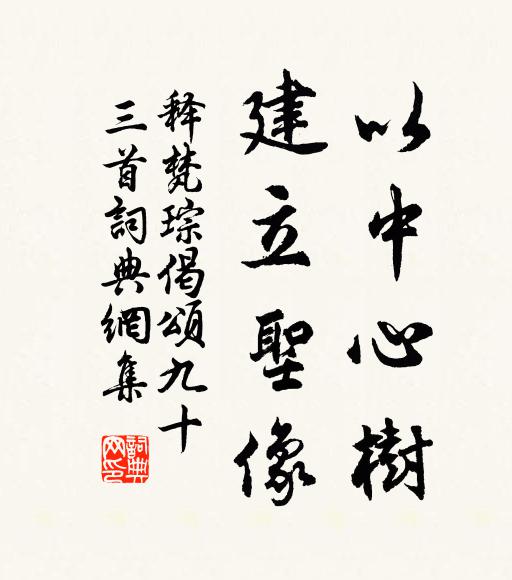 以中心樹
建立聖像
释梵琮偈頌九十
三首詞典網集
詞典网印